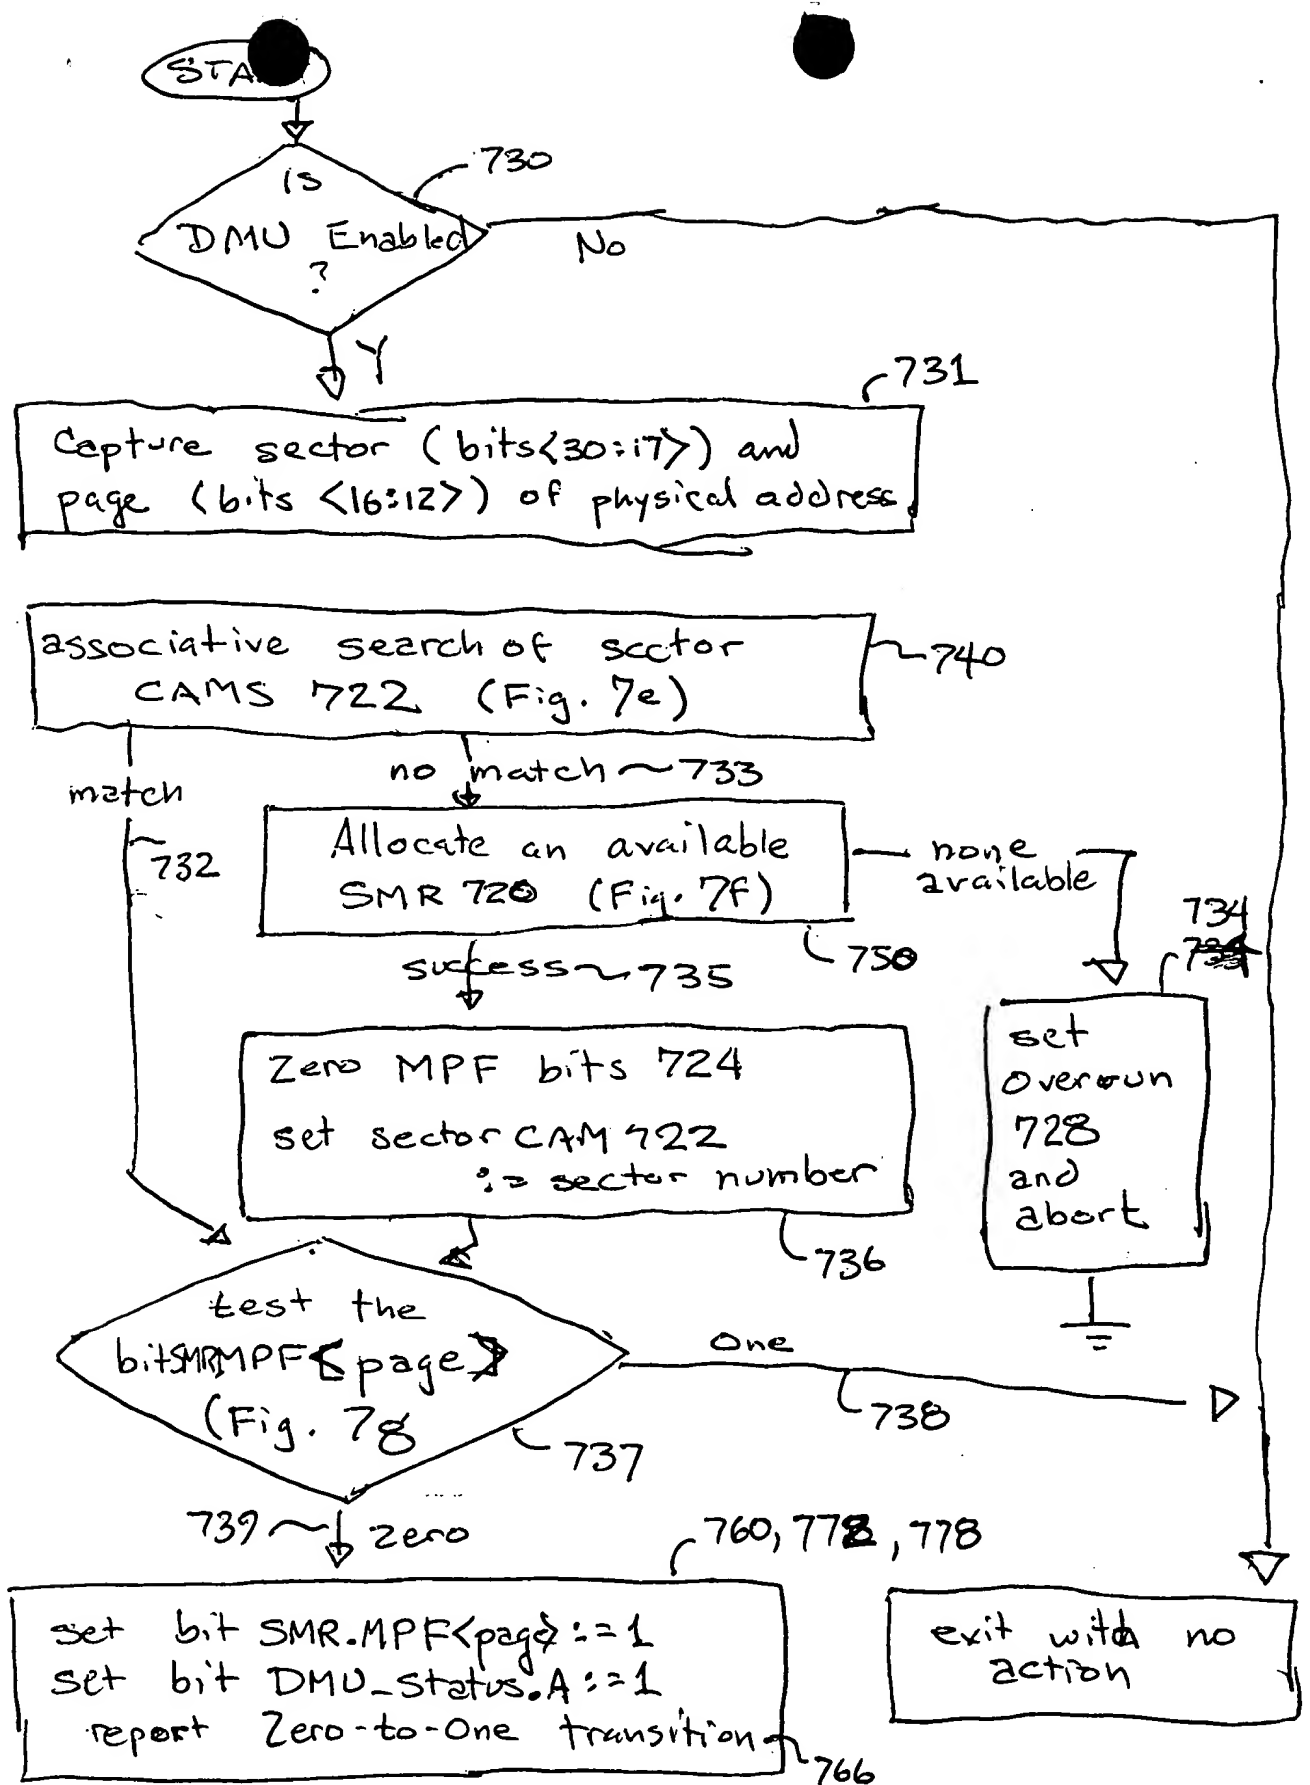 STA
730
is
DMU Enabled
?
No
Y
731
Capture sector (bits<30:17>) and
page (bits <16:12>) of physical address
associative search of sector
CAMS 722 (Fig. 7e)
740
match
no match 733
732
Allocate an available
SMR 720 (Fig. 7f)
none
available
750
734
success 735
Zero MPF bits 724
set sector CAM 722
:= sector number
736
set
overrun
728
and
abort
test the
bit SMR.MPF<page>
(Fig. 7g
One
738
737
739
zero
760, 772, 778
set bit SMR.MPF<page> :=1
set bit DMU_Status.A :=1
report Zero-to-One transition
766
exit with no
action